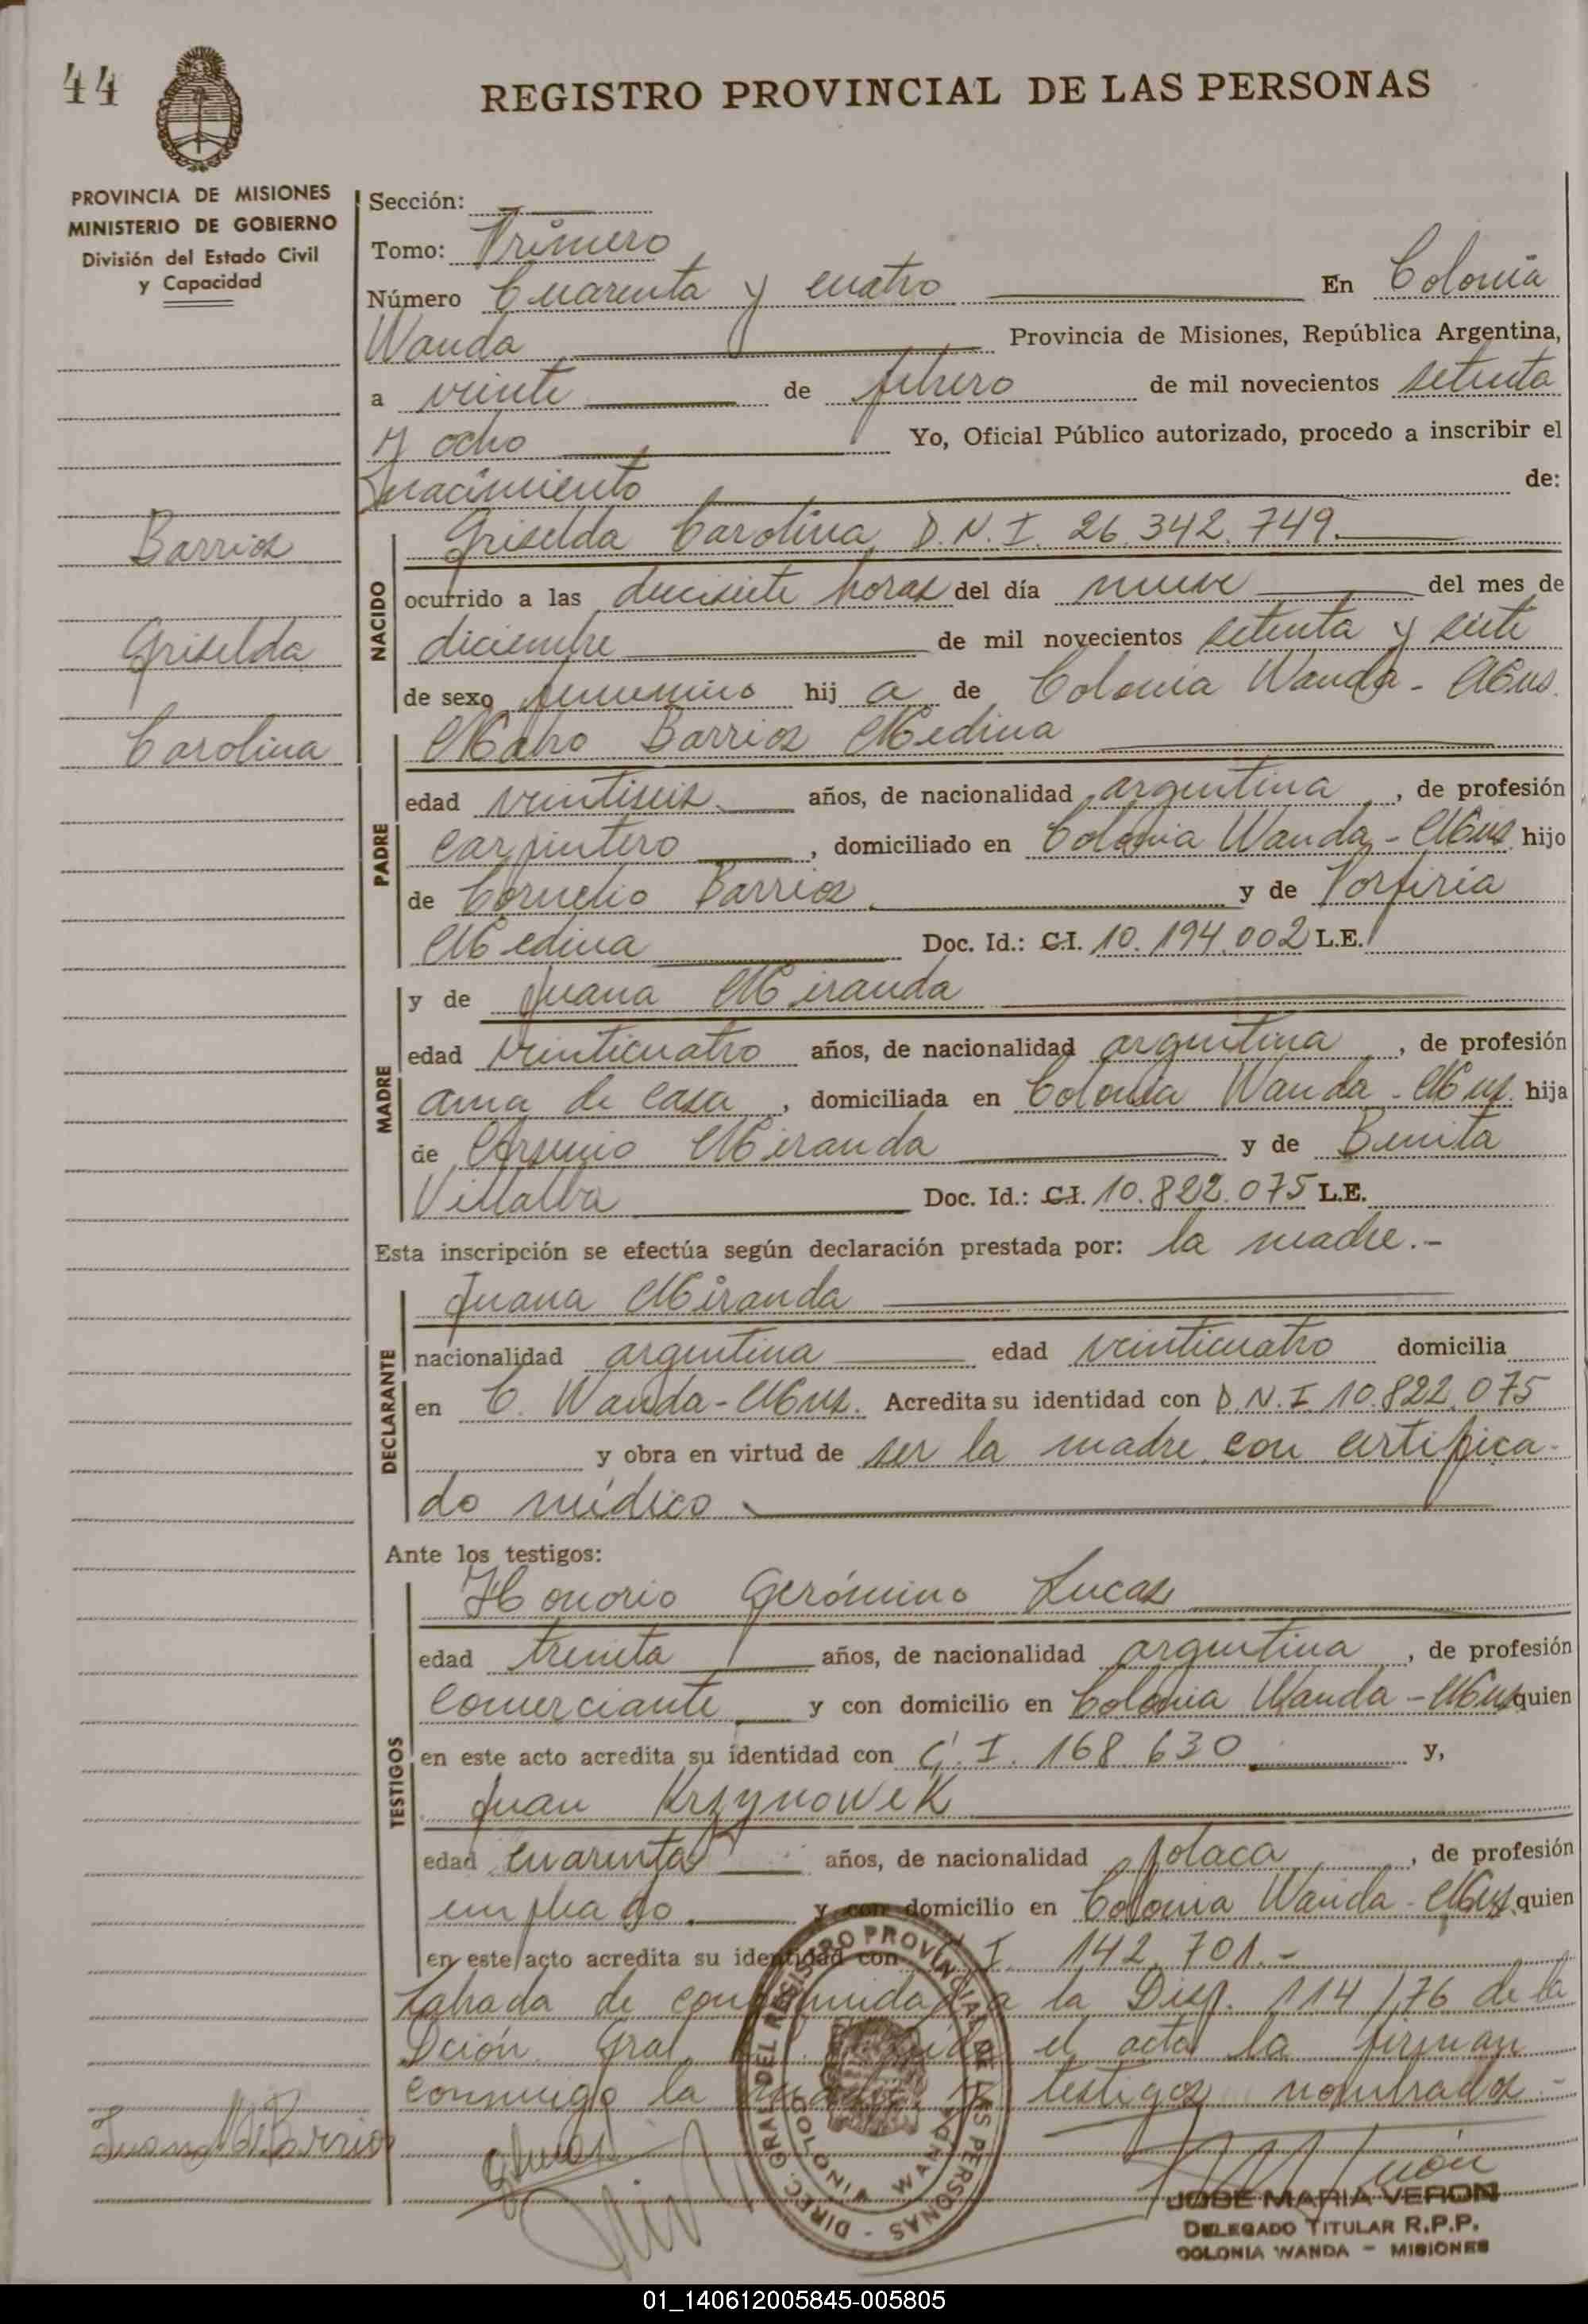 44
REGISTRO PROVINCIAL DE LAS PERSONAS
PROVINCIA DE MISIONES
MINISTERIO DE GOBIERNO
División del Estado Civil
y Capacidad
Sección:
Tomo: Primero
Número Cuarenta y cuatro En Colonia
Wanda Provincia de Misiones, República Argentina,
a veinte de febrero de mil novecientos setenta
y ocho Yo, Oficial Público autorizado, procedo a inscribir el
nacimiento de:
Barrios
Griselda
Carolina
NACIDO
Griselda Carolina, D.N.I. 26.342.749.
ocurrido a las diecisiete horas del día nueve del mes de
diciembre de mil novecientos setenta y siete
de sexo femenino hij a de Colonia Wanda - Mns.
PADRE
Barrios Medina
edad veintiseis años, de nacionalidad argentina, de profesión
carpintero, domiciliado en Colonia Wanda - Mns. hijo
de Cornelio Barrios y de Porfiria
Medina Doc. Id.: C.I. 10.194.002 L.E.
MADRE
y de Juana Miranda
edad veinticuatro años, de nacionalidad argentina, de profesión
ama de casa, domiciliada en Colonia Wanda - Mns. hija
de Arsenio Miranda y de Benita
Villalba Doc. Id.: C.I. 10.822.075 L.E.
Esta inscripción se efectúa según declaración prestada por: la madre.-
DECLARANTE
Juana Miranda
nacionalidad argentina edad veinticuatro domicilia
en C. Wanda - Mns. Acredita su identidad con D.N.I. 10.822.075
y obra en virtud de ser la madre, con certifica-
do médico.
Ante los testigos:
TESTIGOS
Honorio Gerónimo Lucas
edad treinta años, de nacionalidad argentina, de profesión
comerciante y con domicilio en Colonia Wanda - Mns quien
en este acto acredita su identidad con C.I. 168.630 y,
Juan Krzynowek
edad cuarenta años, de nacionalidad polaca, de profesión
empleado y con domicilio en Colonia Wanda - Mns. quien
en este acto acredita su identidad con C.I. 142.701.-
Labrada de conformidad a la Disp. 114/76 de la
Dción. Gral. el acta la firman
conmigo la madre y testigos nombrados.-
Juana M. Barrios
DIREC. GRAL. DEL REGISTRO PROVINCIAL DE LAS PERSONAS
COLONIA WANDA
JOSE MARIA VERON
DELEGADO TITULAR R.P.P.
COLONIA WANDA - MISIONES
01_140612005845-005805